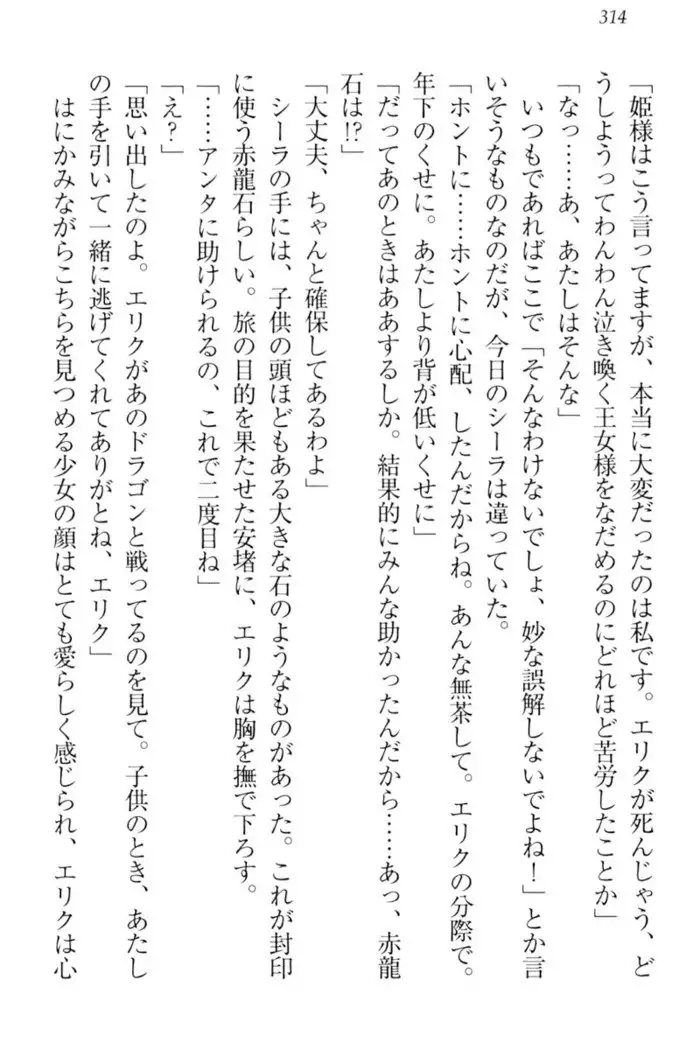 314
「姫様はこう言ってますが、本当に大変だったのは私です。エリクが死んじゃう、ど
うしようってわんわん泣き喚く王女様をなだめるのにどれほど苦労したことか」
「なっ……あ、あたしはそんな」
　いつもであればここで「そんなわけないでしょ、妙な誤解しないでよね！」とか言
いそうなものなのだが、今日のシーラは違っていた。
「ホントに……ホントに心配、したんだからね。あんな無茶して。エリクの分際で。
年下のくせに。あたしより背が低いくせに」
「だってあのときはああするしか。結果的にみんな助かったんだから……あっ、赤龍
石は!?」
「大丈夫、ちゃんと確保してあるわよ」
　シーラの手には、子供の頭ほどもある大きな石のようなものがあった。これが封印
に使う赤龍石らしい。旅の目的を果たせた安堵に、エリクは胸を撫で下ろす。
「……アンタに助けられるの、これで二度目ね」
「え？」
「思い出したのよ。エリクがあのドラゴンと戦ってるのを見て。子供のとき、あたし
の手を引いて一緒に逃げてくれてありがとね、エリク」
　はにかみながらこちらを見つめる少女の顔はとても愛らしく感じられ、エリクは心